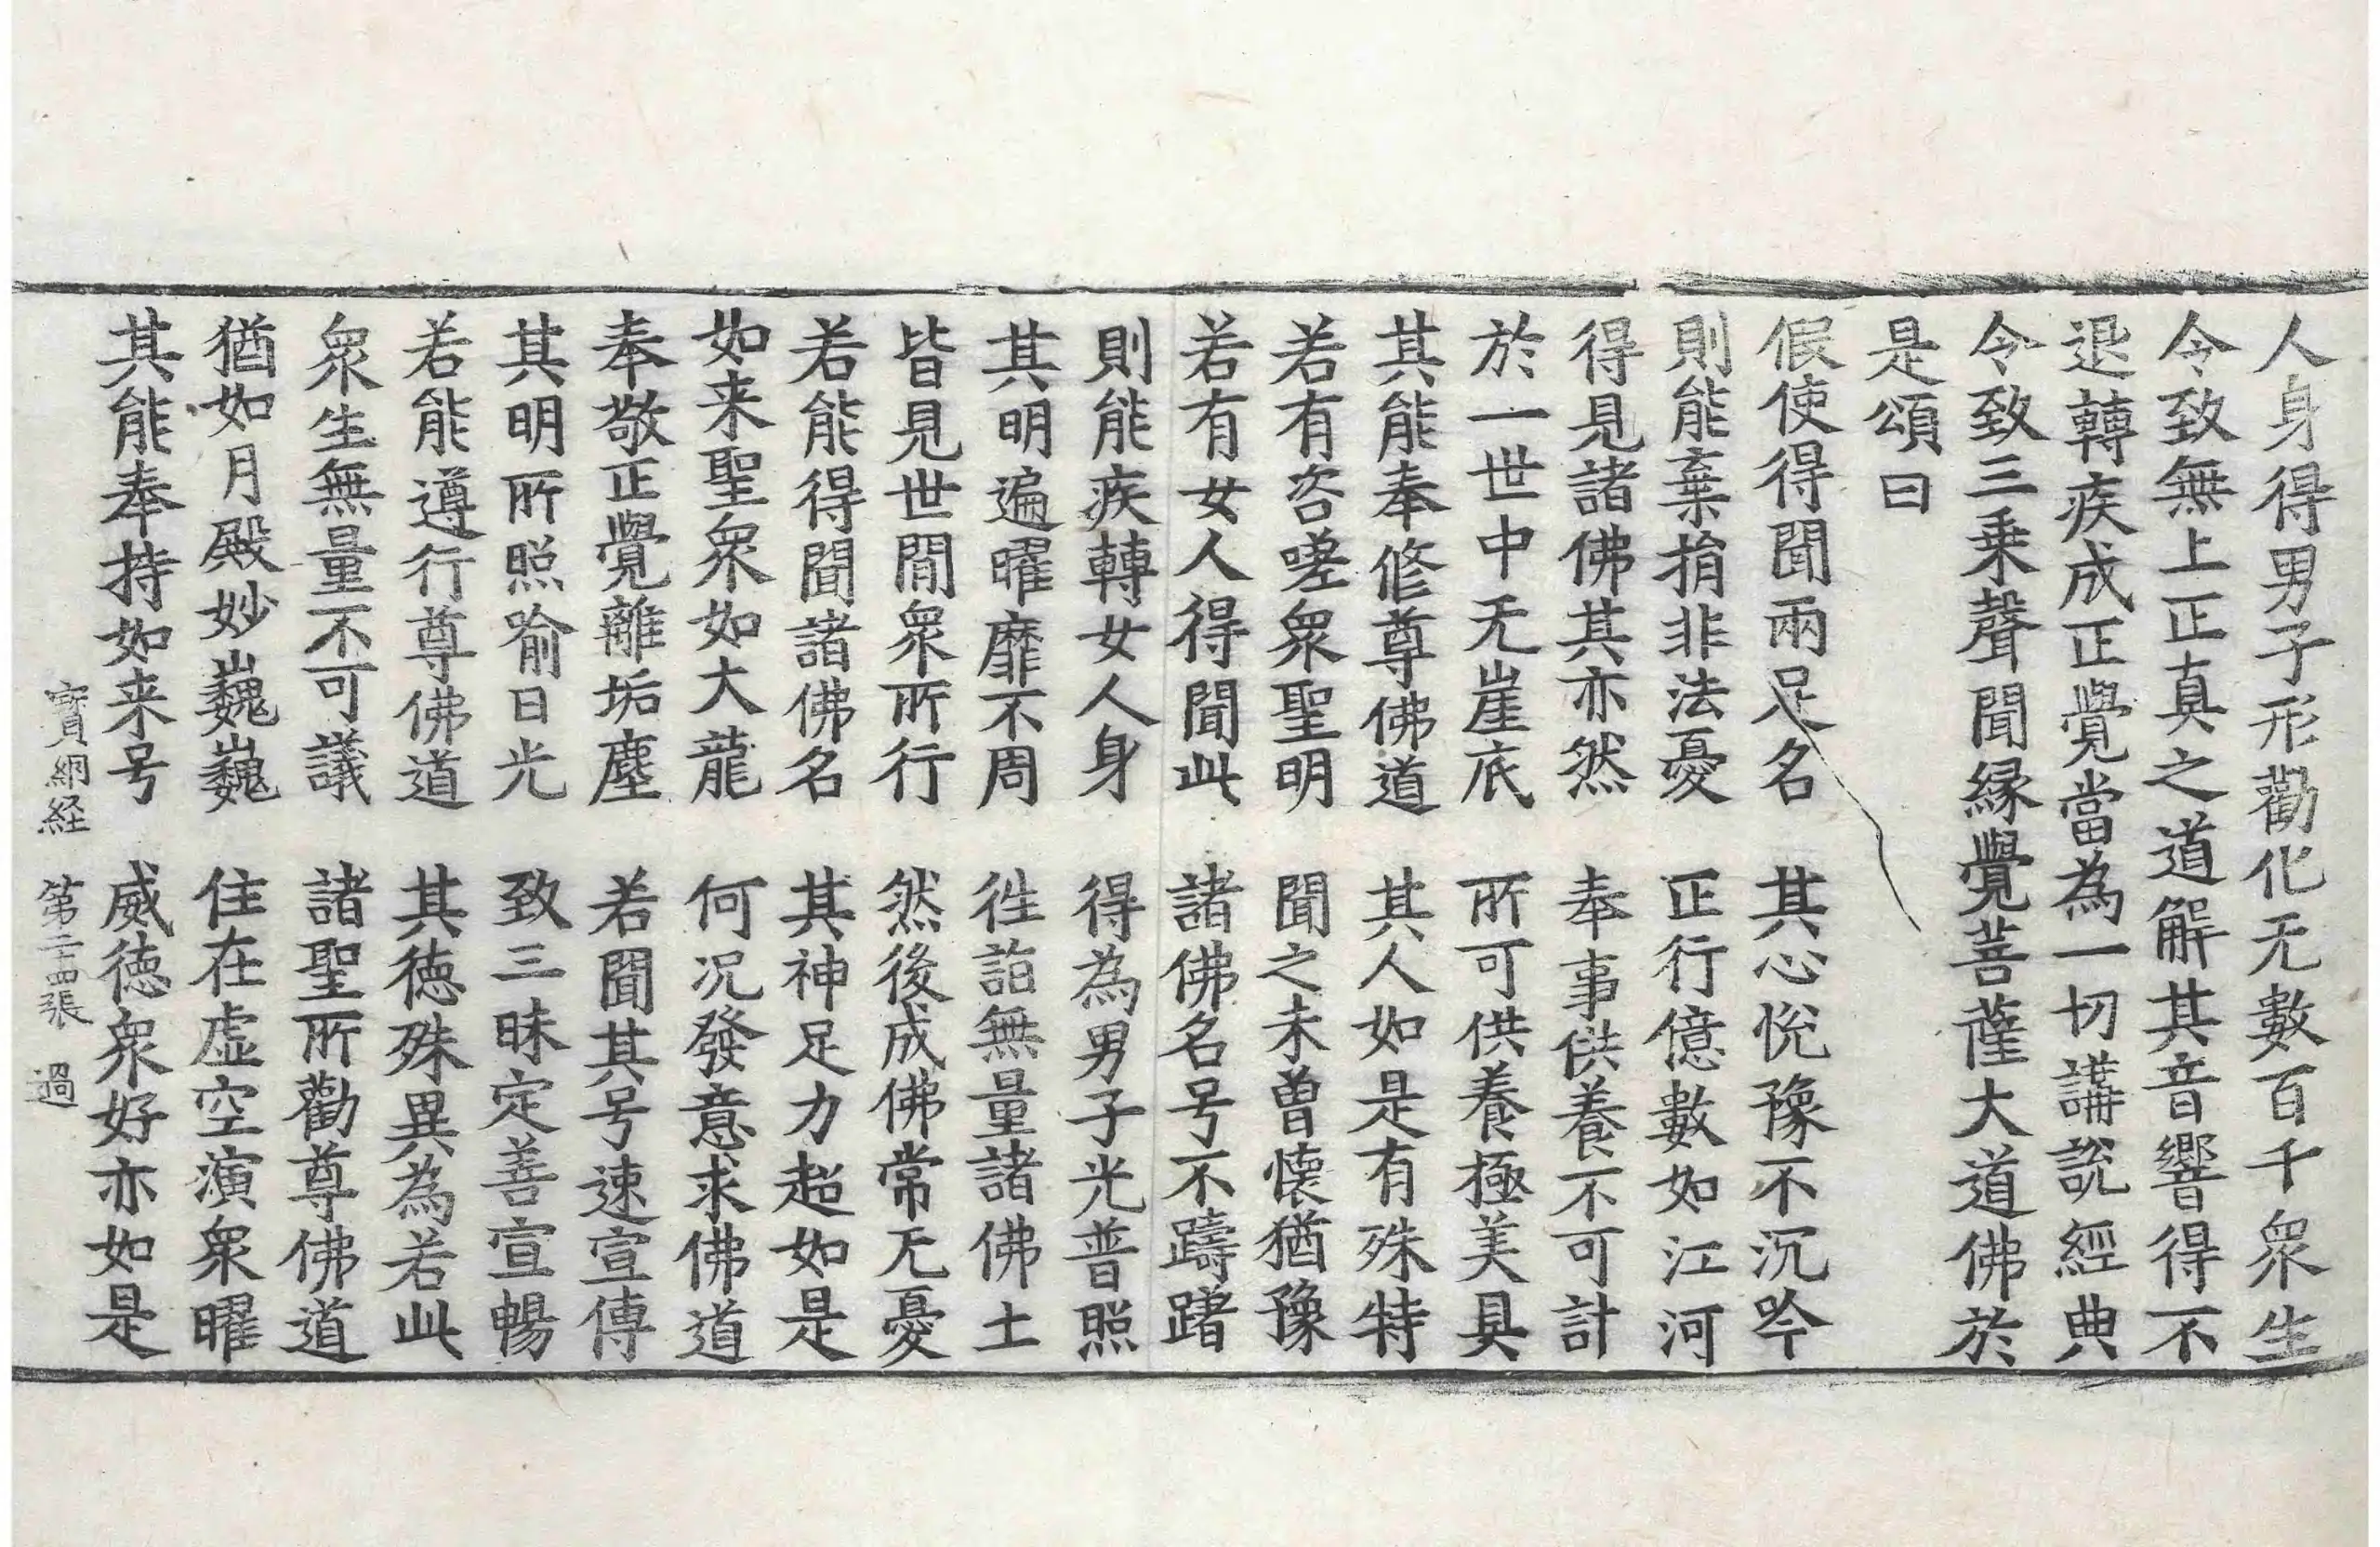 人身得男子形勸化无數百千衆生
令致無上正真之道解其音響得不
退轉疾成正覺當為一切講說經典
令致三乗聲聞縁覺菩薩大道佛於
是頌曰
假使得聞兩足名　其心恱豫不沉吟
則能棄捐非法憂　正行億數如江河
得見諸佛其亦然　奉事供養不可計
於一世中无崖底　所可供養極美具
其能奉修尊佛道　其人如是有殊特
若有咨嗟衆聖明　聞之未曾懐猶豫
若有女人得聞此　諸佛名号不躊躇
則能疾轉女人身　得為男子光普照
其明遍曜靡不周　徃詣無量諸佛土
皆見世間衆所行　然後成佛常无憂
若能得聞諸佛名　其神足力超如是
如来聖衆如大龍　何况發意求佛道
奉敬正覺離垢塵　若聞其号速宣傳
其明所照喻日光　致三昧定善宣暢
若能遵行尊佛道　其徳殊異為若此
衆生無量不可議　諸聖所勸尊佛道
猶如月殿妙巍巍　住在虚空演衆曜
其能奉持如来号　威徳衆好亦如是
寳網経　第二十四張　過